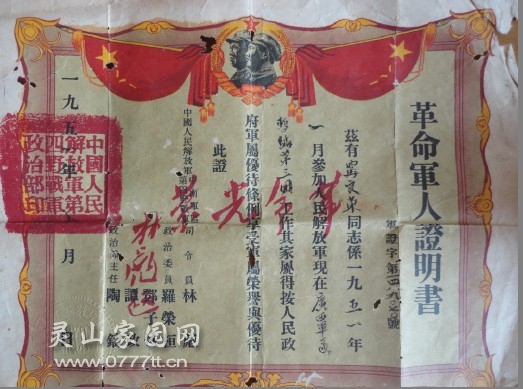 革命軍人證明書
軍證字第四九號
茲有文同志係一九五一年
一月參加人民解放軍現在廣西軍區
第三團工作其家屬得按人民政
府軍屬優待條例享受軍屬榮譽與優待
此證
中國人民解放軍第
司令員林
政治委員羅榮桓
鄧子
譚
政治部主任陶
一九五年月日
革命光榮
林彪
中國人民
解放軍第
四野戰軍
政治部印
灵山家园网
www.0777tt.cn